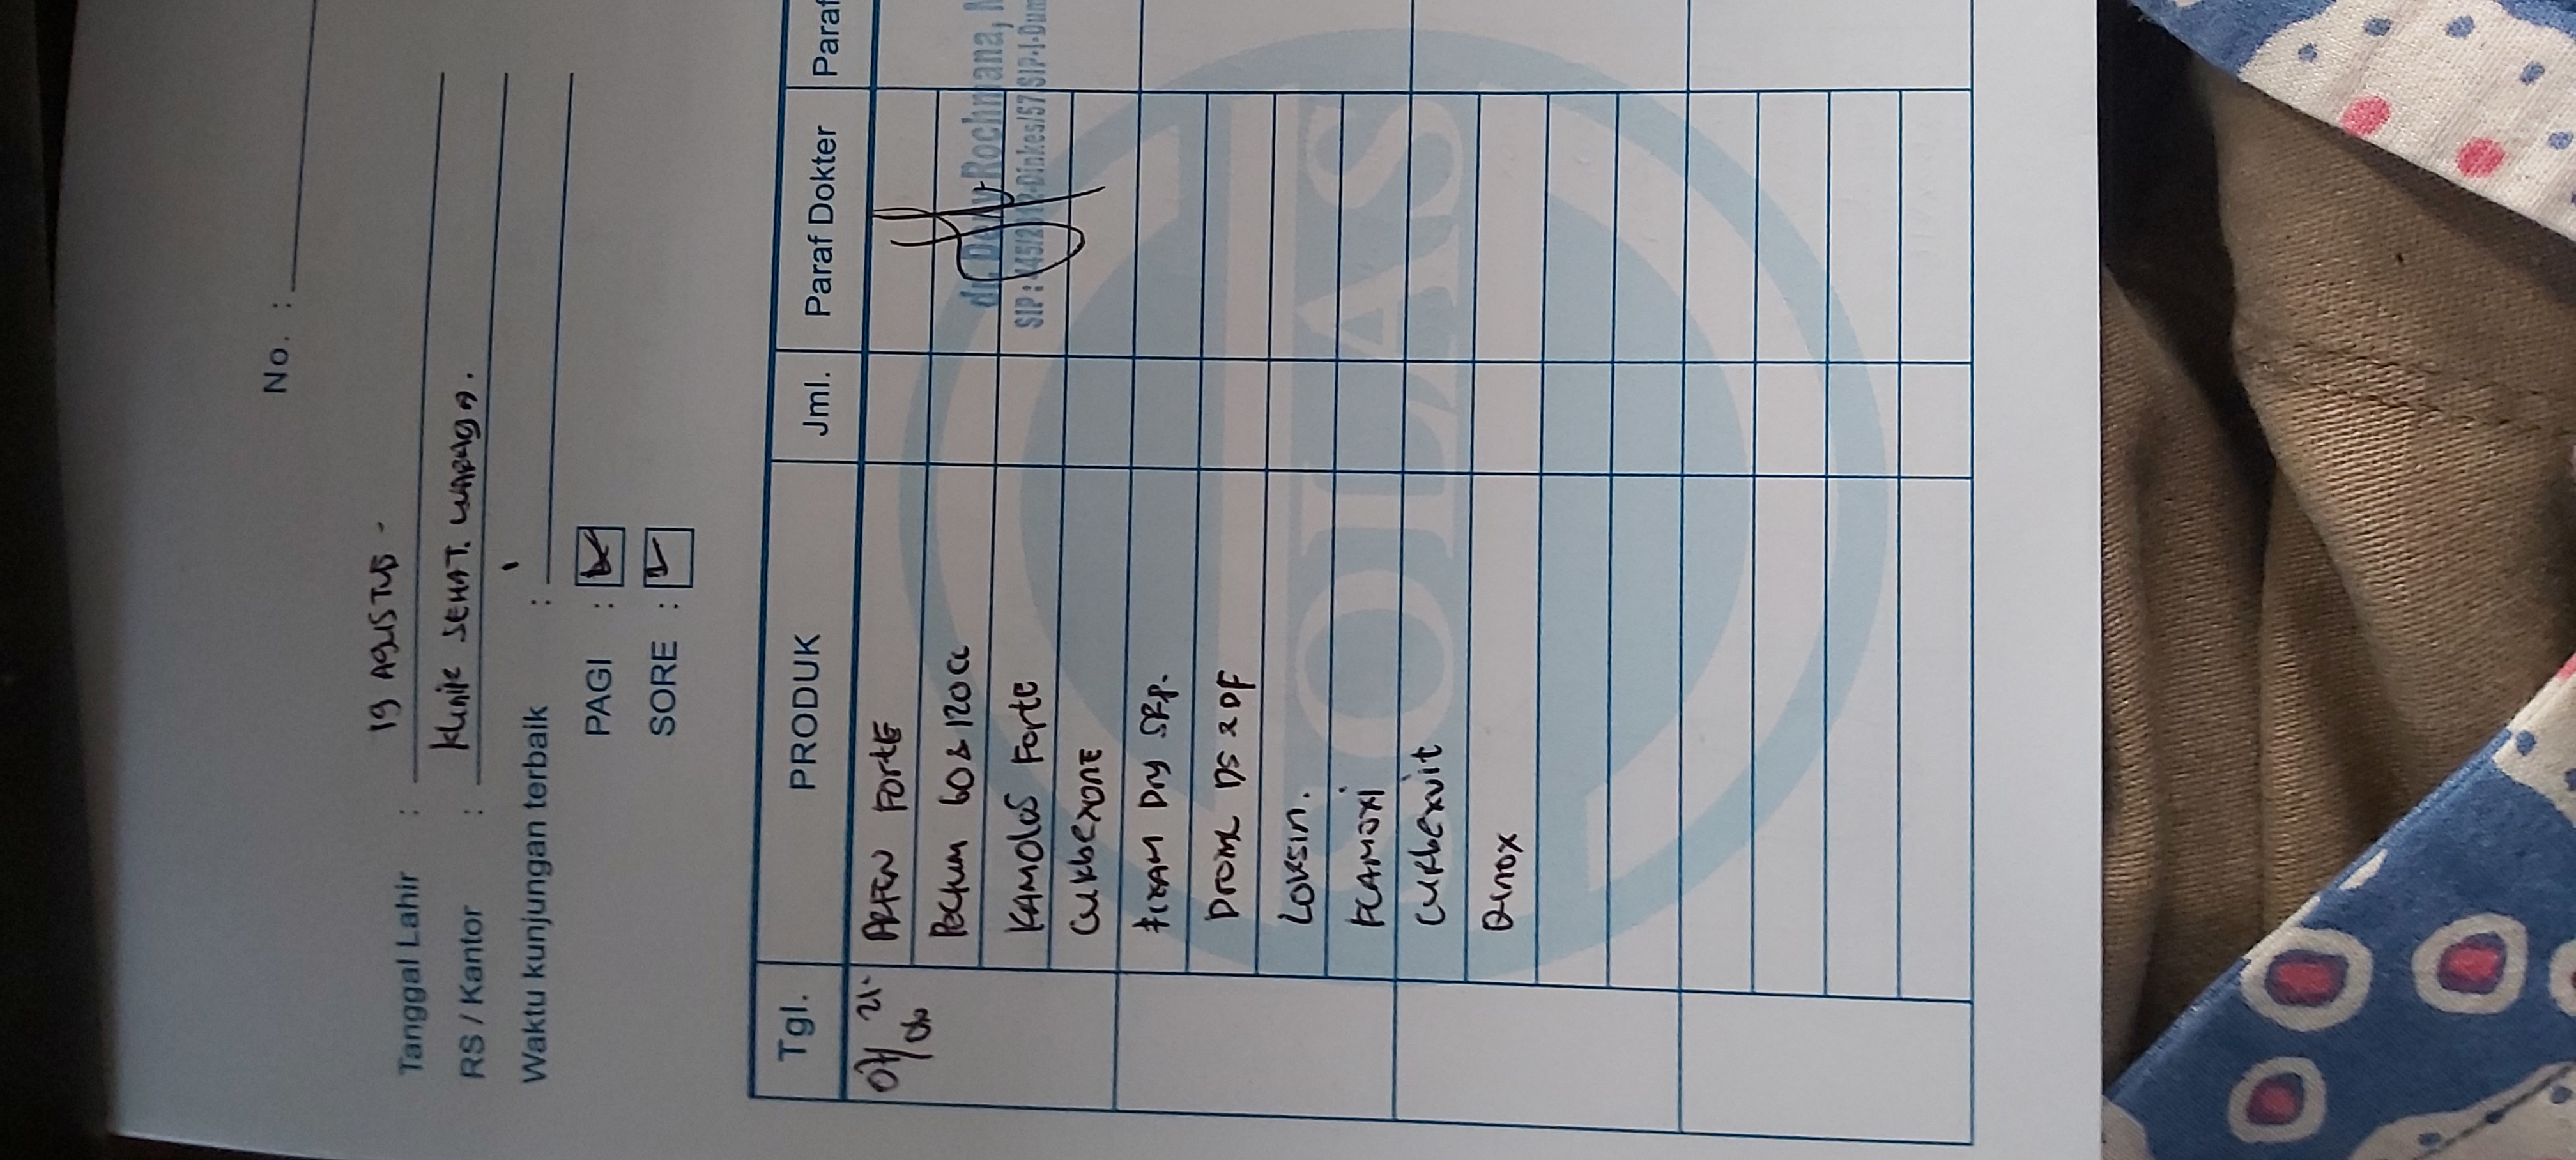 No. :
Tanggal Lahir : 19 AGUSTUS -
RS / Kantor : Klinik SEHAT. WARAGA.
Waktu kunjungan terbaik :
PAGI :
SORE :
Tgl. PRODUK Jml. Paraf Dokter Paraf
07/06 21- ARFEN FORTE
Pectum 60 & 120 cc
dr. Deny Rochmana, M
KAMOLAS Forte
SIP : 445/2 -Dinkes/57/SIP-I-Dum
CURbexONE
FIXAM Dry SRP.
DROME DS & DF
LOKSIN.
KLAMOXI
CURbexvit
Q-inox
SOLAS